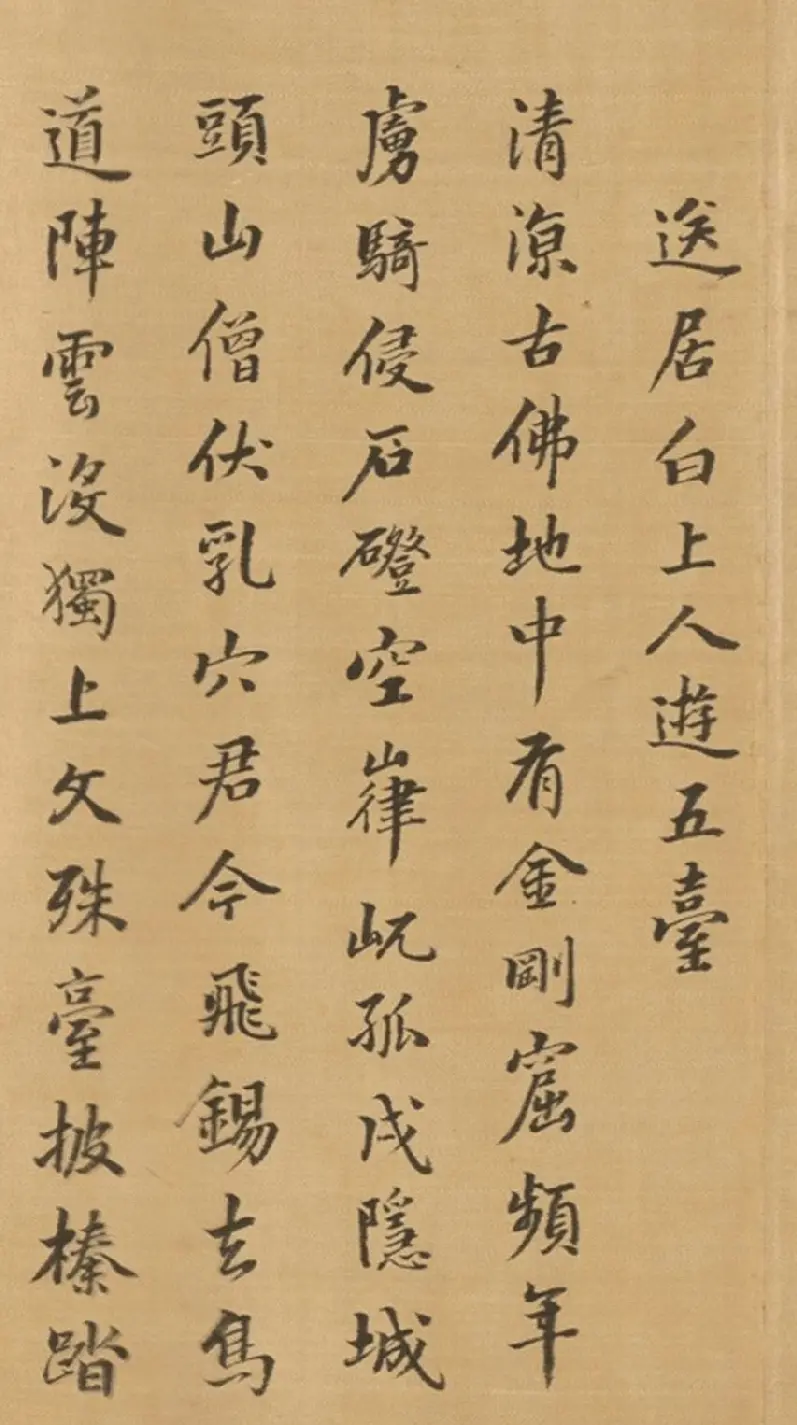 送居白上人遊五臺
清涼古佛地中有金剛窟頻年
虜騎侵石磴空嵂屼孤戍隱城
頭山僧伏乳穴君今飛錫去鳥
道陣雲沒獨上文殊臺披榛踏